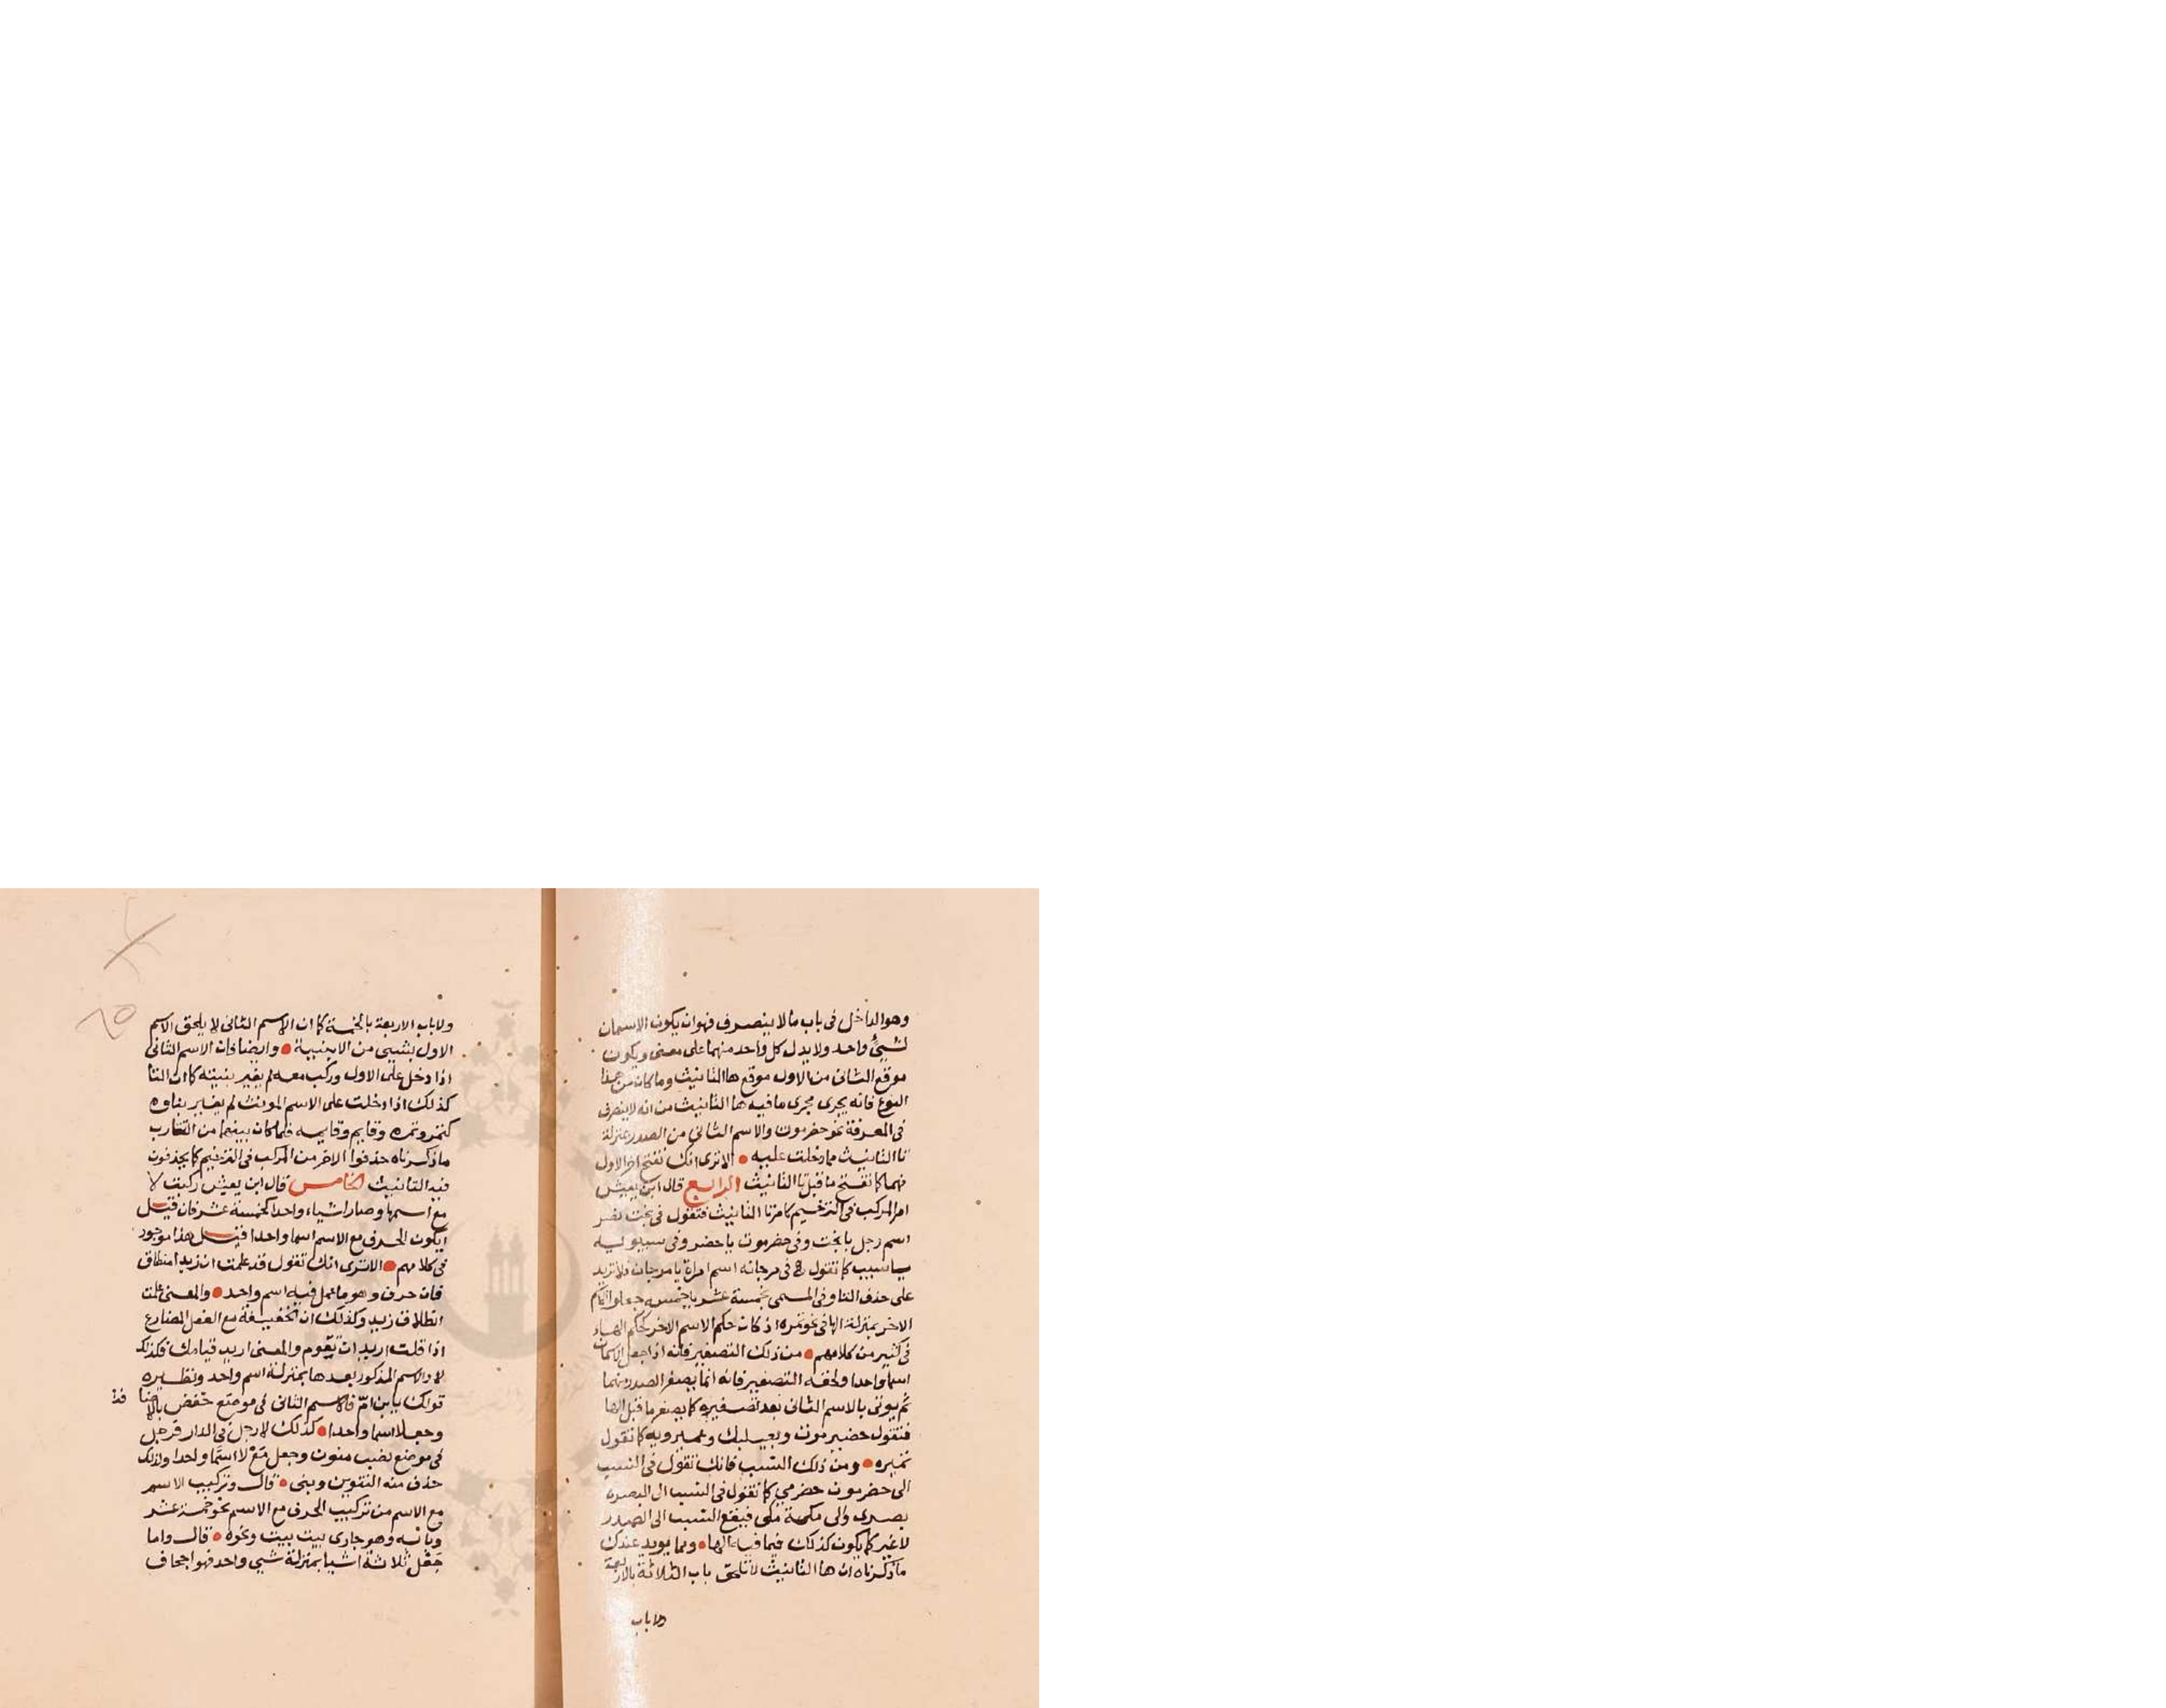 وهو الداخل فى باب مالا ينصرف فهو ان يكون الاسمان
لشيئ واحد ولا يدل كل واحد منهما على معنى ويكون
موقع الثانى من الاول موقع ها التانيث وما كان من هذا
النوع فانه يجرى مجرى ما فيه ها التانيث من انه لا ينصرف
فى المعرفة نحو حضرموت والاسم الثانى من الصدر بمنزلة
تا التانيث مما دخلت عليه • الا ترى انك تفتح اخر الاول
منهما كما تفتح ما قبل تا التانيث الرابع قال ابن يعيش
امر المركب فى الترخيم كامر تا التانيث فتقول فى بخت نصر
اسم رجل يا بخت وفى حضرموت يا حضر وفى سيبويه
يا سيب كما تقول فى مرجانه اسم امراة يا مرجان ولا تزيد
على حذف التا وفى المسمى بخمسة عشر يا خمسه جعلوا الحكم
الاخر بمنزلة الها فى نحو تمره اذ كان حكم الاسم الاخر كحكم الهاء
فى كثير من كلامهم • من ذلك التصغير فانه اذا جعل الاسمان
اسما واحدا ولحقه التصغير فانه انما يصغر الصدر منهما
ثم يوتى بالاسم الثانى بعد تصغيره كما يصغر ما قبل الها
فتقول حضيرموت وبعيلبك وعميرويه كما تقول
تميره • ومن ذلك النسب فانك تقول فى النسب
الى حضرموت حضرمي كما تقول فى النسب الى البصره
بصرى والى مكة مكى فيقع النسب الى الصدر
لا غير كما يكون كذلك فيما فيه الها • ومما يويد عندك
ما ذكرناه ان ها التانيث لا تلحق باب الثلاثة بالاربعة
ولا باب
ولا باب الاربعة بالخمسة كما ان الاسم الثانى لا يلحق الاسم
الاول بشيى من الابنية • وايضا فان الاسم الثانى
اذا دخل على الاول وركب معه لم يغير بنيته كما ان التا
كذلك اذا دخلت على الاسم المونث لم يغير بناوه
كتمر وتمره وقايم وقايمه فلما كان بينهما من التقارب
ما ذكرناه حذفوا الاخر من المركب فى الترخيم كما يحذفون
فيه التانيث الخامس قال ابن يعيش ركبت لا
مع اسمها وصارا شياء واحدا كخمسة عشر فان قيل
ايكون الحرف مع الاسم اسما واحدا قيل هذا موجود
فى كلامهم • الا ترى انك تقول قد علمت ان زيدا منطلق
فان حرف وهو ما عمل فيه اسم واحد • والمعنى علمت
انطلاق زيد وكذلك ان الخفيفة مع الفعل المضارع
اذا قلت اريد ان تقوم والمعنى اريد قيامك فكذلك
لا والاسم المذكور بعدها بمنزلة اسم واحد ونظيره
قولك يا ابن ام فالاسم الثانى فى موضع خفض بالاضا فة
وجعلا اسما واحدا • كذلك لا رجل فى الدار فرجل
فى موضع نصب منون وجعل مع لا اسما واحدا ولذلك
حذف منه التنوين وبنى • قال وتركيب الاسم
مع الاسم من تركيب الحرف مع الاسم نحو خمسة عشر
وبابه وهو جارى بيت بيت ونحوه • قال واما
جعل ثلاثة اشيا بمنزلة شيى واحد فهو اجحاف